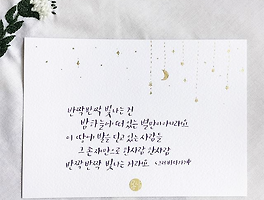 반짝반짝 빛나는 건
밤하늘에 떠 있는 별만이 아니라요
이 땅에 발을 딛고 있는 사람들
그 존재만으로 한사람 한사람
반짝반짝 빛나는 거라요